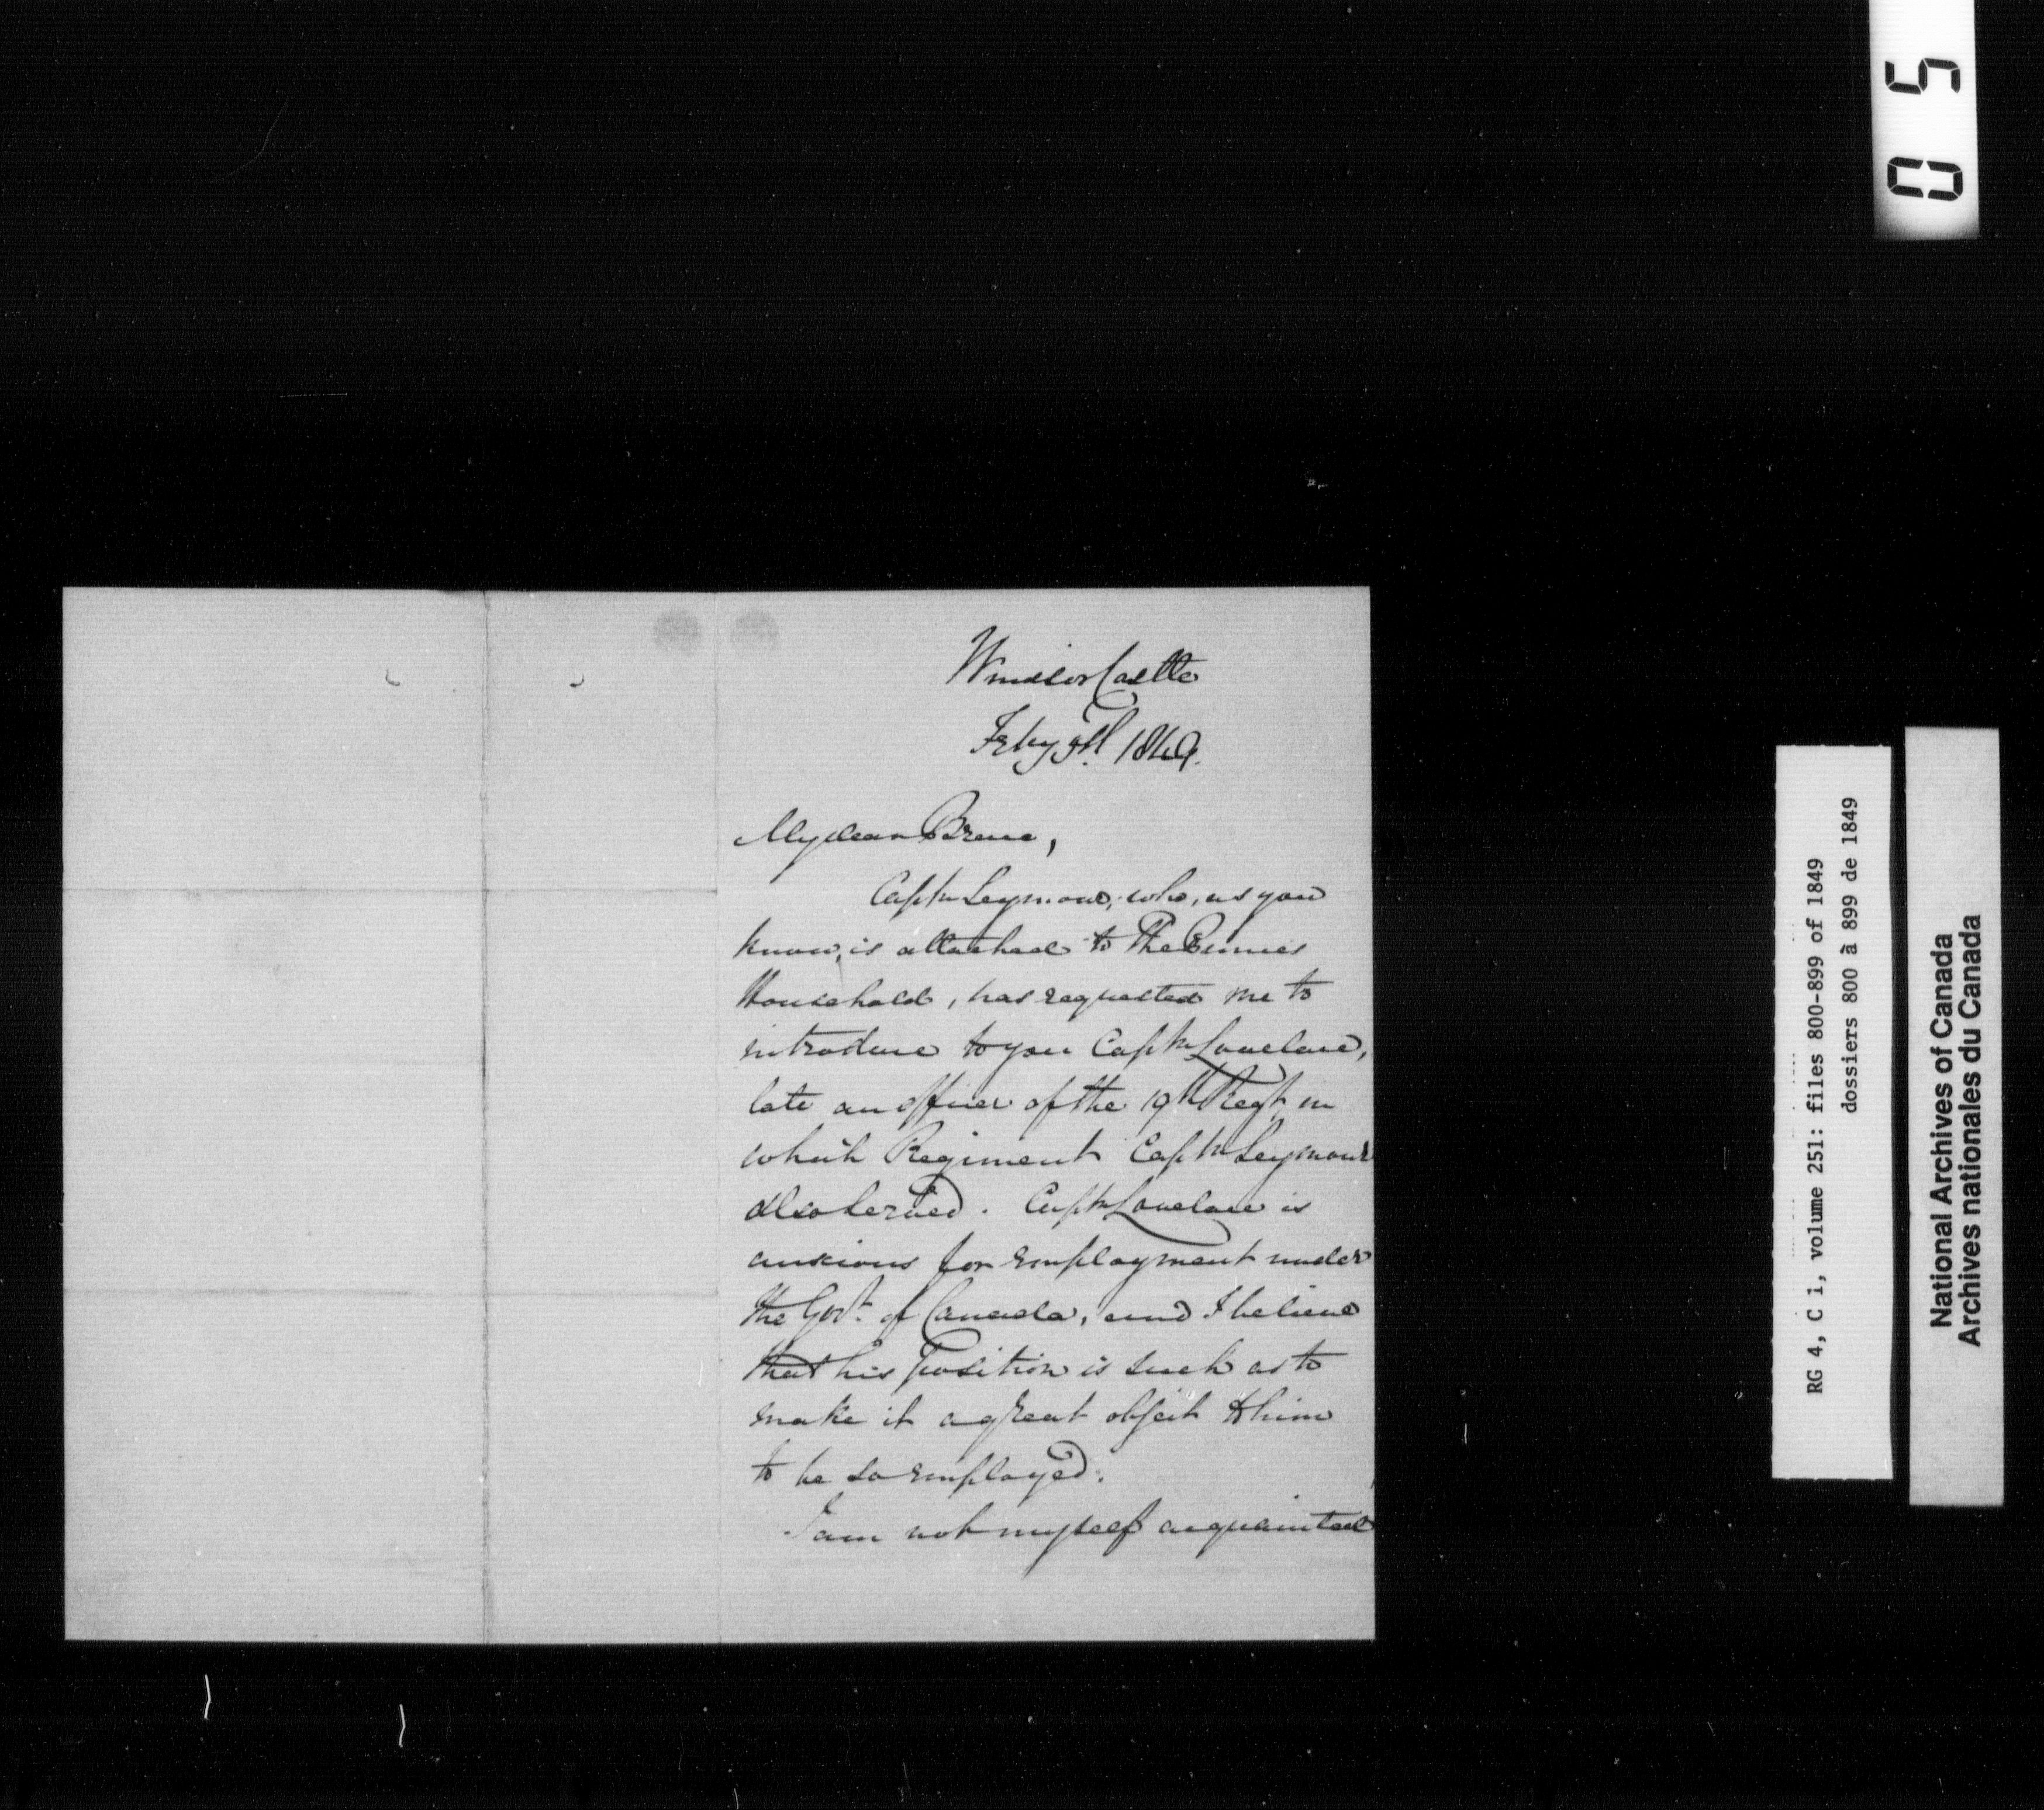 Windsor Castle
Feby 9th. 1849.
My dear Bruce,
Captn Seymour, who, as you
know, is attached to The Princes
Household, has requested me to
introduce to you Captn Lovelace,
late an officer of the 19th Regt. in
which Regiment Captn Seymour
also served. Captn Lovelace is
anxious for employment under
the Govt. of Canada, and I believe
that his position is such as to
make it a great object to him
to be so employed.
I am not myself acquainted
05
RG 4, C i, volume 251: files 800-899 of 1849
dossiers 800 à 899 de 1849
National Archives of Canada
Archives nationales du Canada